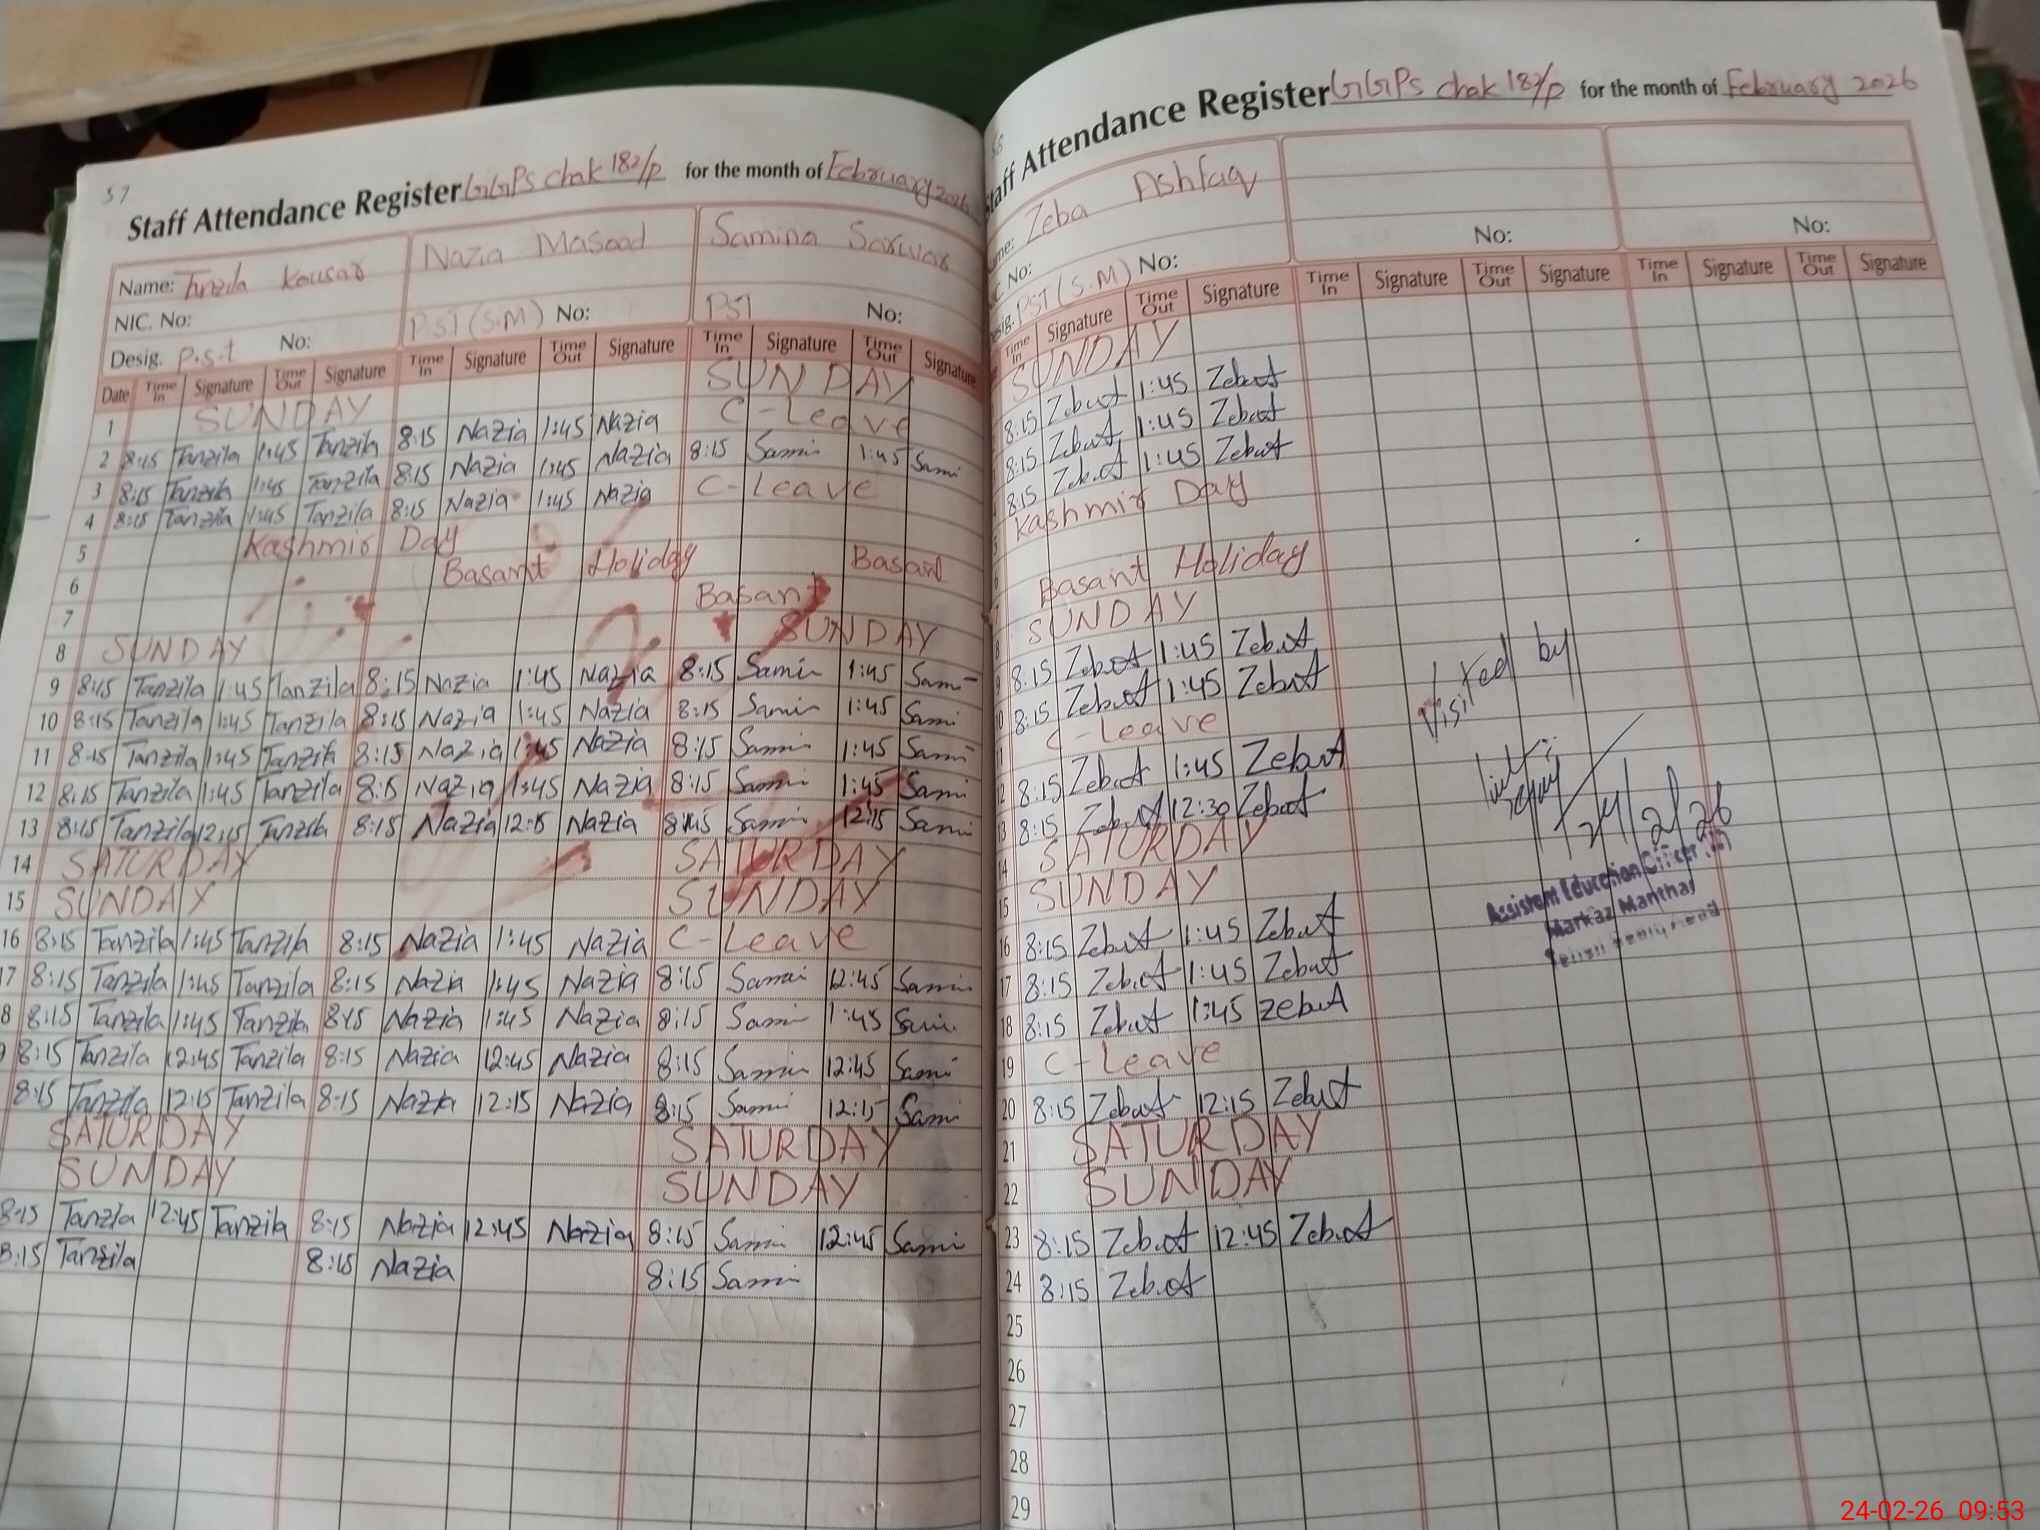 57
Staff Attendance Register GGPS chak 182/p for the month of February 2026
Name: Tanzila Kousar Nazia Masood Samina Sarwar
NIC. No:
Desig. P.S.T No: PST (S.M) No: PST No:
Date Time In Signature Time Out Signature Time In Signature Time Out Signature Time In Signature Time Out Signature
1 SUNDAY SUNDAY
2 8:15 Tanzila 1:45 Tanzila 8:15 Nazia 1:45 Nazia C-Leave
3 8:15 Tanzila 1:45 Tanzila 8:15 Nazia 1:45 Nazia 8:15 Sami 1:45 Sami
4 8:15 Tanzila 1:45 Tanzila 8:15 Nazia 1:45 Nazia C-Leave
5 Kashmir Day
6 Basant Holiday Basant
7 Basant
8 SUNDAY SUNDAY
9 8:15 Tanzila 1:45 Tanzila 8:15 Nazia 1:45 Nazia 8:15 Samin 1:45 Sami
10 8:15 Tanzila 1:45 Tanzila 8:15 Nazia 1:45 Nazia 8:15 Samin 1:45 Sami
11 8:15 Tanzila 1:45 Tanzila 8:15 Nazia 1:45 Nazia 8:15 Sami 1:45 Sami
12 8:15 Tanzila 1:45 Tanzila 8:15 Nazia 1:45 Nazia 8:15 Sami 1:45 Sami
13 8:15 Tanzila 12:15 Tanzila 8:15 Nazia 12:15 Nazia Sami 12:15 Sami
14 SATURDAY SATURDAY
15 SUNDAY SUNDAY
16 8:15 Tanzila 1:45 Tanzila 8:15 Nazia 1:45 Nazia C-Leave
17 8:15 Tanzila 1:45 Tanzila 8:15 Nazia 1:45 Nazia 8:15 Sami 12:45 Sami
8 8:15 Tanzila 1:45 Tanzila 8:15 Nazia 1:45 Nazia 8:15 Sami 1:45 Sami
8:15 Tanzila 12:45 Tanzila 8:15 Nazia 12:45 Nazia 8:15 Sami 12:45 Sami
8:15 Tanzila 12:15 Tanzila 8:15 Nazia 12:15 Nazia 8:15 Sami 12:15 Sami
SATURDAY SATURDAY
SUNDAY SUNDAY
8:15 Tanzila 12:45 Tanzila 8:15 Nazia 12:45 Nazia 8:15 Sami 12:45 Sami
8:15 Tanzila 8:15 Nazia 8:15 Sami
Staff Attendance Register GGPS chak 182/p for the month of February 2026
Name: Zeba Ashfaq
No: No: No:
Desig. PST (S.M) No:
Time In Signature Time Out Signature Time In Signature Time Out Signature Time In Signature Time Out Signature
SUNDAY
8:15 Zebust 1:45 Zebust
8:15 Zebust 1:45 Zebust
8:15 Zebust 1:45 Zebust
Kashmir Day
Basant Holiday
SUNDAY
8:15 Zebust 1:45 Zebust
10 8:15 Zebust 1:45 Zebust
11 C-Leave
12 8:15 Zebust 1:45 Zebust
13 8:15 Zebust 12:30 Zebust
14 SATURDAY
15 SUNDAY
16 8:15 Zebust 1:45 Zebust
17 8:15 Zebust 1:45 Zebust
18 8:15 Zebust 1:45 Zebust
19 C-Leave
20 8:15 Zebust 12:15 Zebust
21 SATURDAY
22 SUNDAY
23 8:15 Zebust 12:45 Zebust
24 8:15 Zebust
25
26
27
28
29
Visited by
24/2/26
Assistant Education Officer
Markaz Manthar
24-02-26 09:53